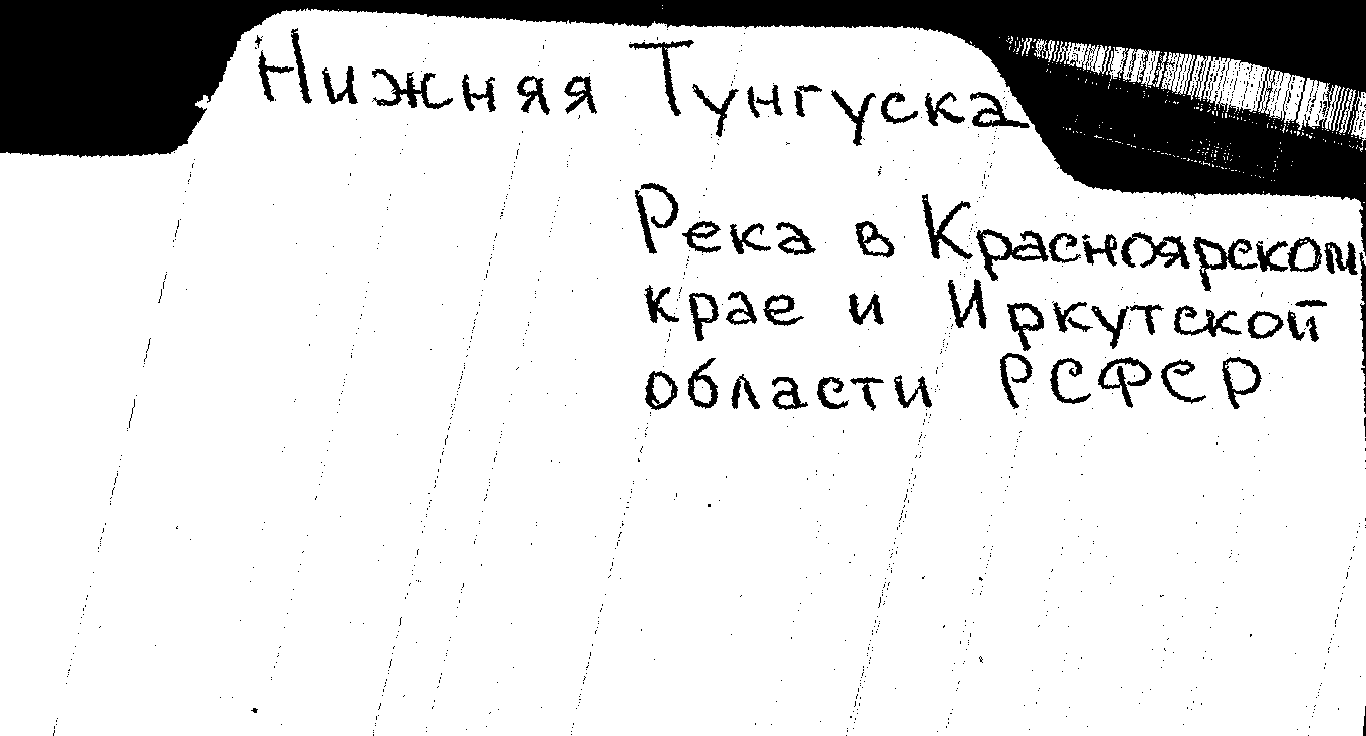 Нижняя Тунгуска
Река в Красноярском
крае и Иркутской
области РСФСР